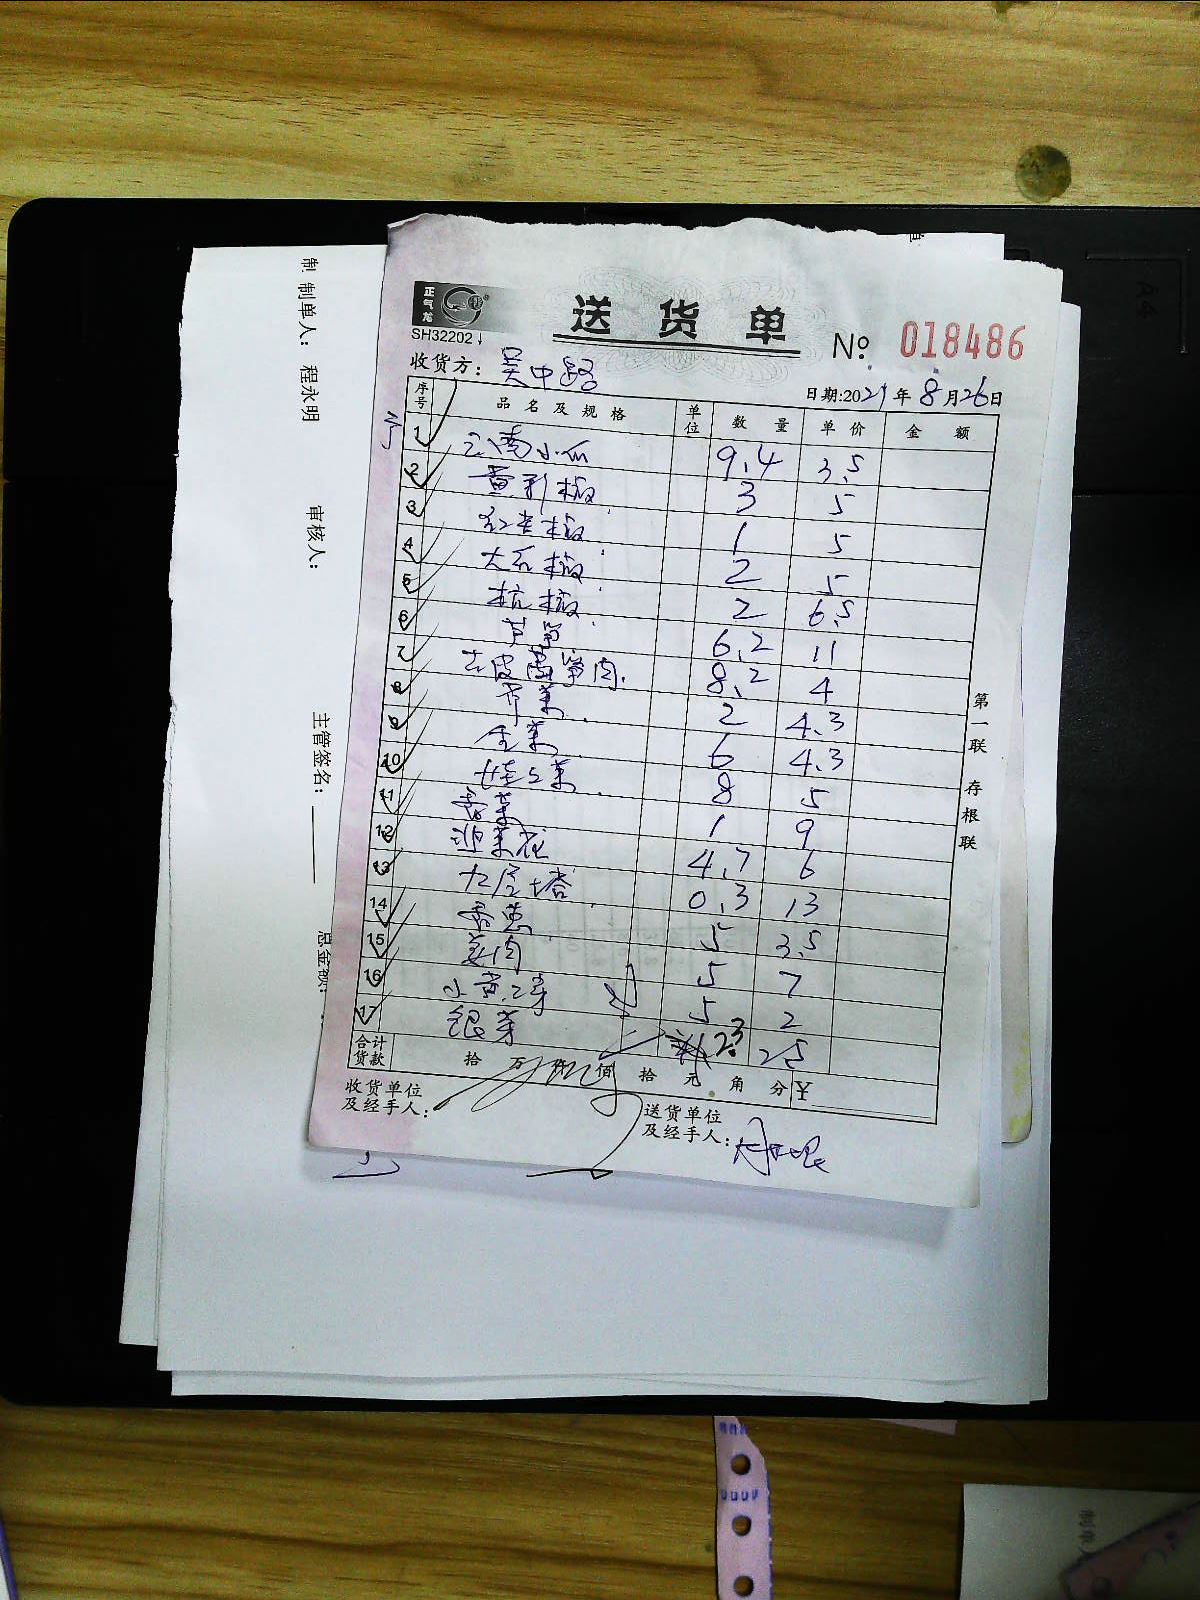 制单人： 程永明
审核人：
主管签名：
总金额：
正气龙
SH32202
送货单
№ 018486
收货方： 吴中路
日期:2021年8月26日
序号 品名及规格 单位 数量 单价 金额
1 云南小瓜 9.4 3.5
2 黄彩椒 3 5
3 红尖椒 1 5
4 大石椒 2 5
5 杭椒 2 6.5
6 芦笋 6.2 11
7 去皮莴笋肉 8.2 4
8 芹菜 2 4.3
9 生菜 6 4.3
10 娃娃菜 8 5
11 香菜 1 9
12 韭菜花 4.7 6
13 九层塔 0.3 13
14 香葱 5 3.5
15 姜肉 5 7
16 小黄芽 5 2
17 银芽 2.3 2.5
合计货款 拾 万 仟 佰 拾 元 角 分 ¥
收货单位及经手人：
送货单位及经手人：
第一联 存根联
A4